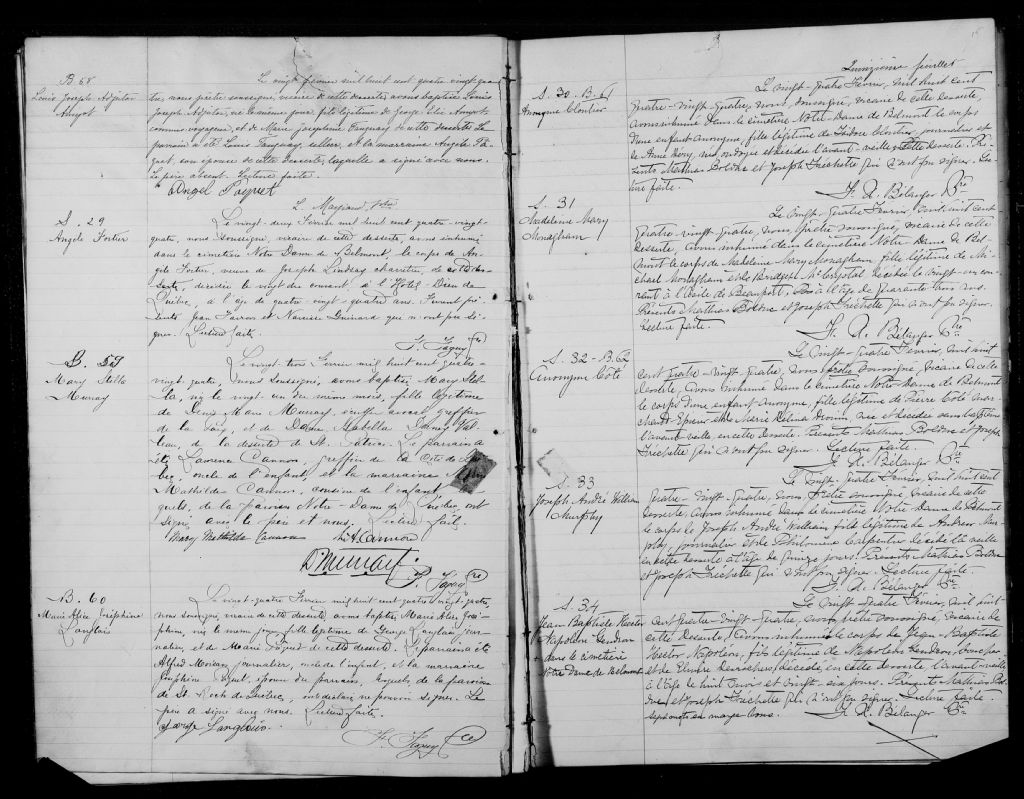 B 58
Louis Joseph Adjutor
Amyot
Le vingt fevrier mil huit cent quatre vingt qua
tre, nous prêtre soussigné, vicaire de cette desserte, avons baptisé Louis
Joseph Adjutor, né le même jour, fils légitime de George Elie Amyot,
commis voyageur, et de Marie Josephine Tanguay de cette desserte. Le
parrain a été Louis Tanguay, sellier, et la marraine Angele Pa
quet, son épouse de cette desserte, laquelle a signé avec nous.
Le père absent. Lecture faite.
Angel Paquet
S. 29
Angele Fortier
Le vingt-deux Février mil huit cent quatre-vingt-
quatre, nous soussigné, vicaire de cette desserte, avons inhumé
dans le cimetière Notre Dame de Belmont, le corps de An-
gele Fortier, veuve de Joseph Lindsay charretier, de cette des-
serte, décédée le vingt du courant, à l'Hôtel-Dieu de
Québec, à l'age de quatre-vingt-quatre ans. Furent pré-
sents Jean Favron et Narcisse Guimard qui n'ont pu si-
gner. Lecture faite.
F. Faguy Ptre
B. 59
Mary Stella
Murray
Le vingt-trois Février mil huit cent quatre-
vingt-quatre, nous soussigné, avons baptisé Mary Stel-
la, née le vingt un du même mois, fille légitime
de Denis Murray, avocat greffier
de la Paix, et de Dame
de la desserte de St. Patrice. Le parrain a
été Lawrence Cannon, greffier de la Cité de
bec, oncle de l'enfant, et la marraine
Mathilde Cannon, cousine de l'enfant,
quels, de la paroisse Notre-Dame de Québec ont
signé avec le père et nous. Lecture faite.
Mary Mathilde Cannon L. A. Cannon
D Murray
F. Faguy Ptre
B. 60
Marie Alice Joséphine
Langlais
Le vingt-quatre Février mil huit cent quatre vingt quatre,
nous soussigné, vicaire de cette desserte, avons baptisé Marie Alice José-
phine, née le même jour, fille légitime de George Langlais jour-
nalier, et de Marie Paquet de cette desserte. Le parrain a été
Alfred Moisan, journalier, oncle de l'enfant, et la marraine
Josephine Paquet, épouse du parrain, lesquels de la paroisse
de St Roch de Québec, ont déclaré ne pouvoir signer. Le
père a signé avec nous. Lecture faite.
George Langlois
F. Faguy Ptre
Quinzième feuillet
S. 30 - B. 61
Anonyme Cloutier
Le vingt-quatre Février, mil huit cent
quatre-vingt-quatre, nous, soussigné, vicaire de cette desserte,
avons inhumé dans le cimetière Notre-Dame de Belmont le corps
d'une enfant Anonyme, fille légitime de Isidore Cloutier, journalier et
de Anne Héry, née, ondoyée et décédée l'avant-veille en cette desserte. Pré-
sents Mathias Bolduc et Joseph Fréchette qui n'ont pu signer. Lec-
ture faite.
F. X. Bélanger Ptre
S. 31
Madeleine Mary
Monaghan
Le vingt-quatre Février, mil huit cent
quatre-vingt-quatre, nous, prêtre soussigné, vicaire de cette
desserte, avons inhumé dans le cimetière Notre-Dame de Bel-
mont le corps de Madeleine Mary Monaghan fille légitime de Mi-
chael Monaghan et de Bridget décédée le vingt-un cou-
rant à l'Asile de Beauport à l'âge de quarante trois ans.
Présents Mathias Bolduc et Joseph Fréchette qui n'ont pu signer.
Lecture faite.
F. X. Bélanger Ptre
S. 32 - B. 62
Anonyme Côté
Le vingt-quatre Février, mil huit
cent quatre-vingt-quatre, nous prêtre soussigné, vicaire de cette
desserte, avons inhumé dans le cimetière Notre-Dame de Belmont
le corps d'une enfant-anonyme, fille légitime de Pierre Côté mar-
chand-Epicier et de Marie Delina née et décédée sans baptême
l'avant-veille, en cette desserte. Présents Mathias Bolduc et Joseph
Fréchette qui n'ont pu signer. Lecture faite.
F. X. Bélanger Ptre
S. 33
Joseph André William
Murphy
Le vingt-quatre Février, mil huit cent
quatre-vingt-quatre, nous prêtre soussigné, vicaire de cette
desserte, avons inhumé dans le cimetière Notre-Dame de Belmont
le corps de Joseph André William fils légitime de Andrew Mur-
phy, journalier et de Philomène Carpentier décédé la veille
en cette desserte à l'âge de quinze jours. Présents Mathias Bolduc
et Joseph Fréchette qui n'ont pu signer. Lecture faite.
F. X. Bélanger Ptre
S. 34
Jean Baptiste Hector
Napoléon Gendron
dans le cimetière
Notre Dame de Belmont
Le vingt-quatre Février, mil huit-
cent quatre-vingt-quatre, nous prêtre soussigné, vicaire de
cette desserte, avons inhumé le corps de Jean Baptiste
Hector Napoléon, fils légitime de Napoléon Gendron, boucher
et de Elmire Desrochers, décédé, en cette desserte l'avant-veille
à l'âge de huit mois et vingt-six jours. Présents Mathias Bol-
duc et Joseph Fréchette qui n'ont pu signer. Lecture faite.
F. X. Bélanger Ptre